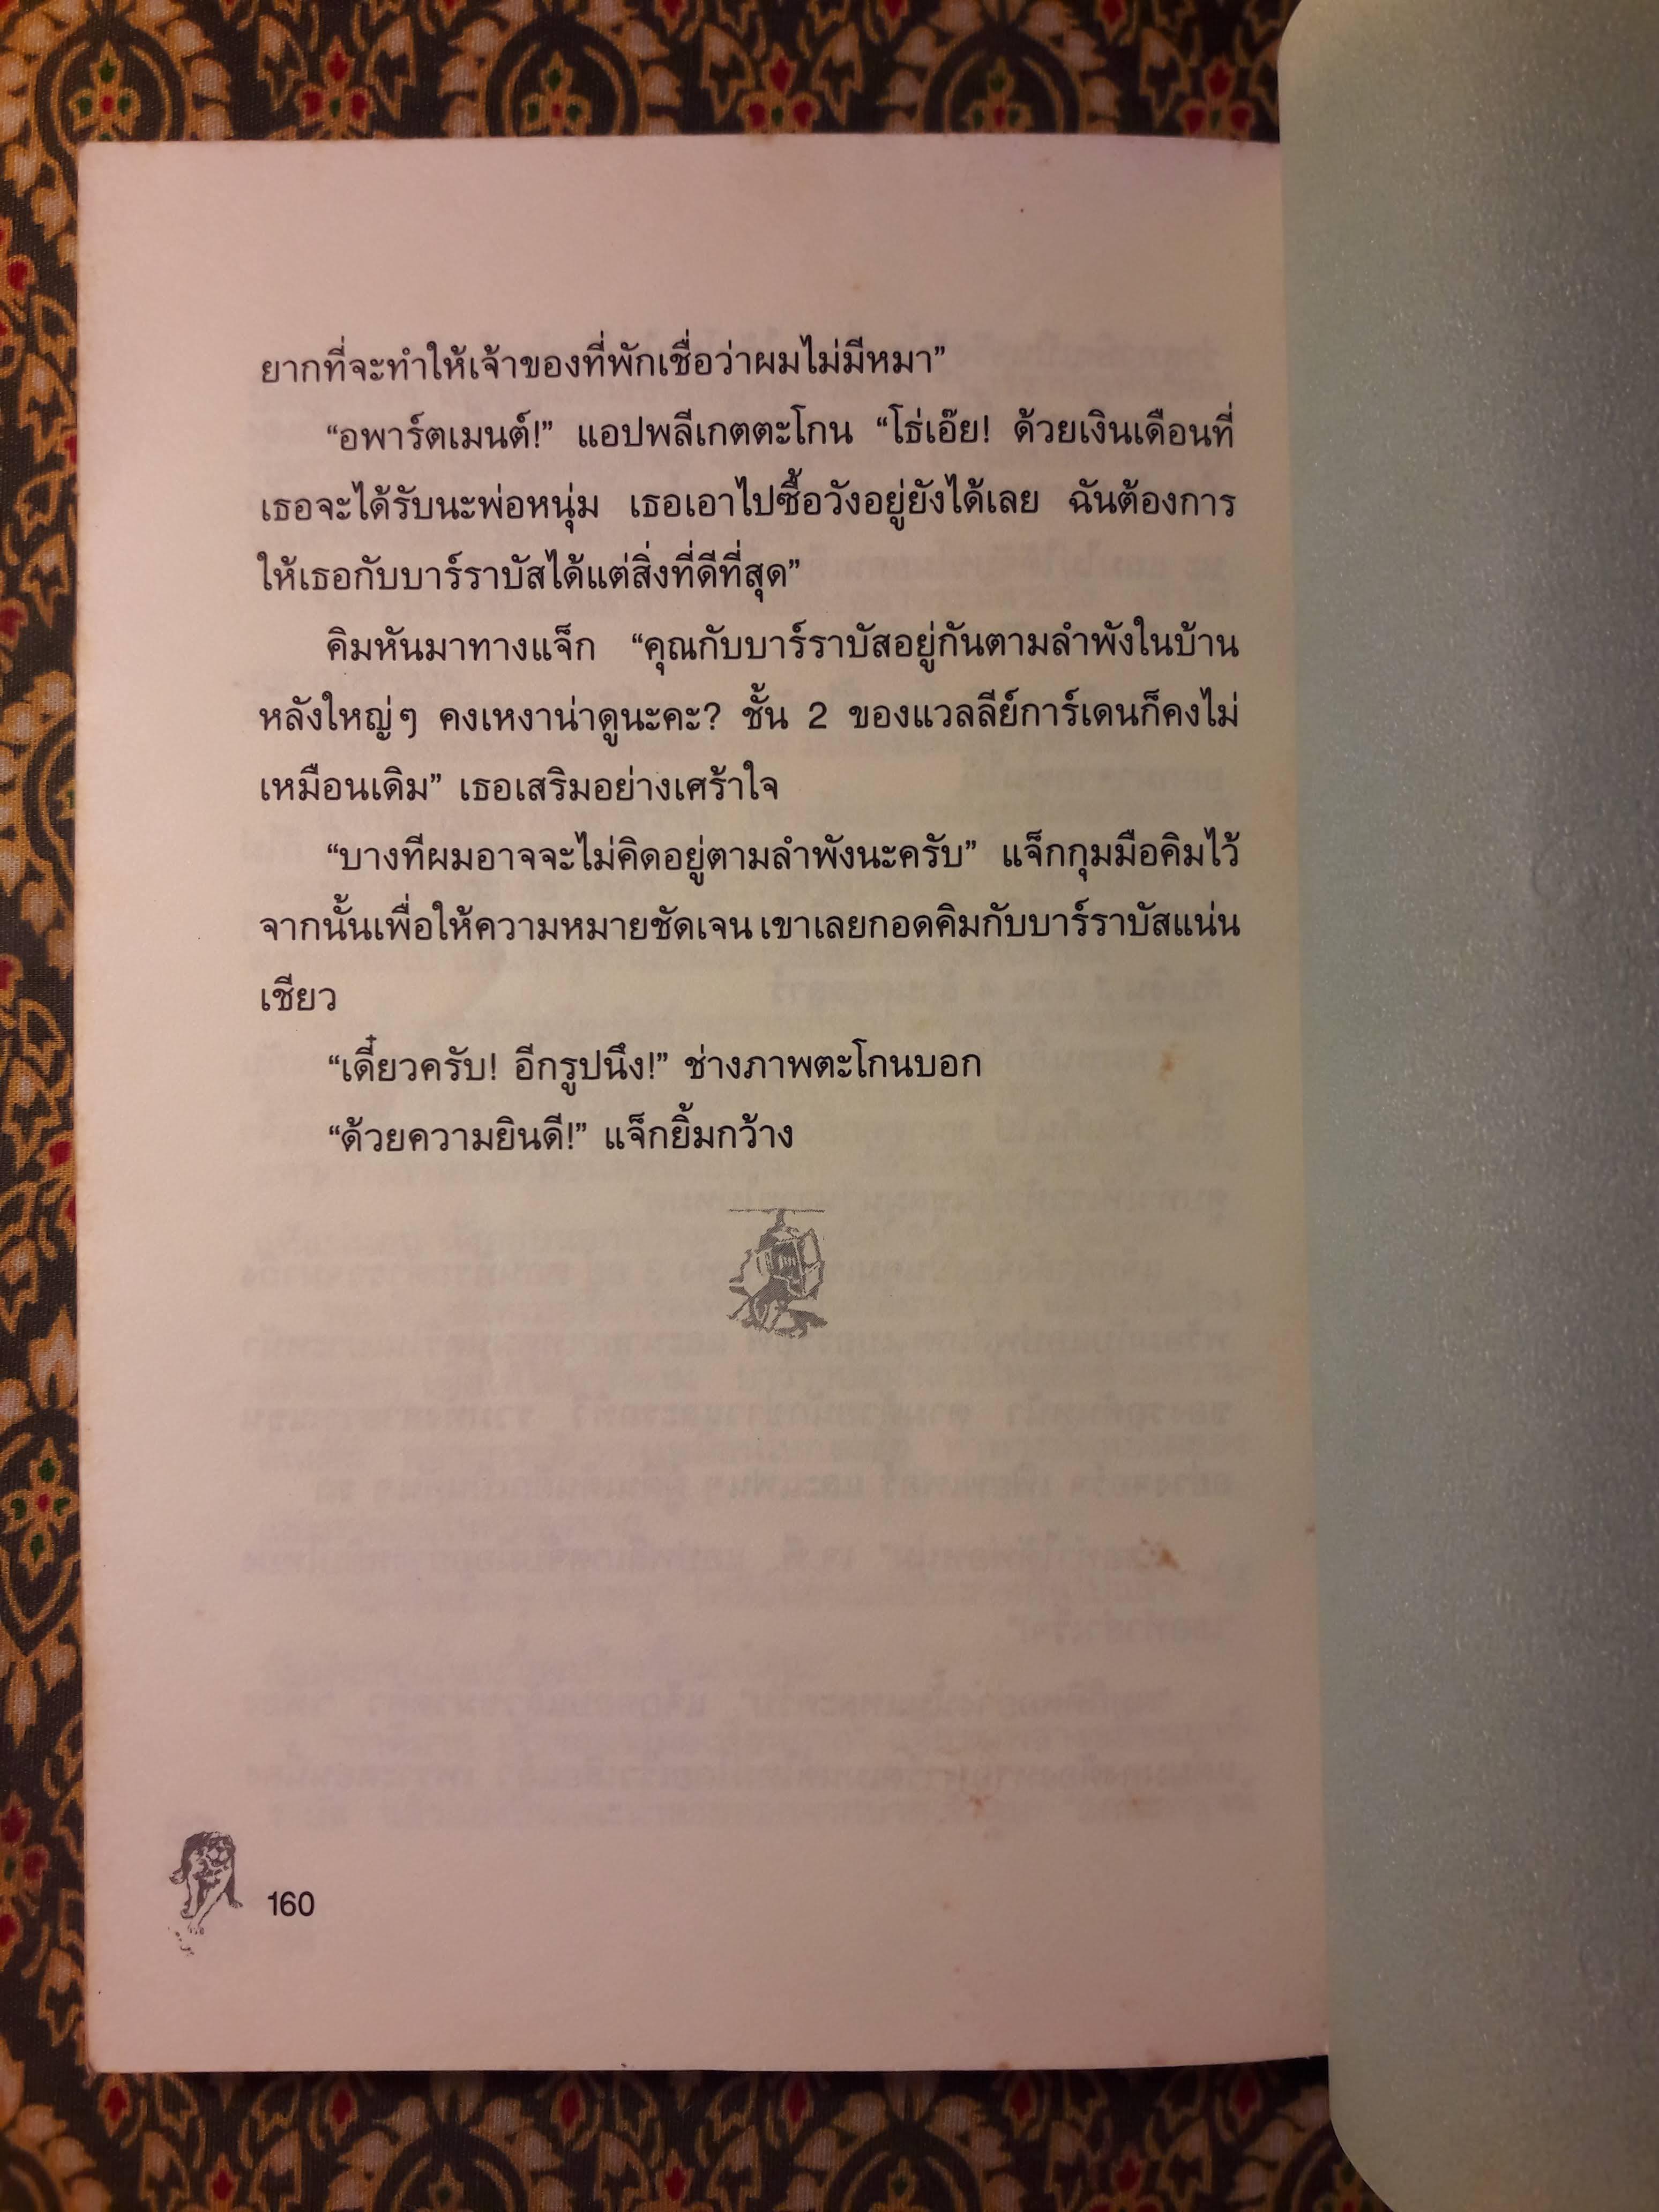 ยากที่จะทำให้เจ้าของที่พักเชื่อว่าผมไม่มีหมา”
“อพาร์ตเมนต์!” แอปพลีเกตตะโกน “โธ่เอ๊ย! ด้วยเงินเดือนที่
เธอจะได้รับนะพ่อหนุ่ม เธอเอาไปซื้อวังอยู่ยังได้เลย ฉันต้องการ
ให้เธอกับบาร์ราบัสได้แต่สิ่งที่ดีที่สุด”
คิมหันมาทางแจ็ก “คุณกับบาร์ราบัสอยู่กันตามลำพังในบ้าน
หลังใหญ่ๆ คงเหงาน่าดูนะคะ? ชั้น 2 ของแวลลีย์การ์เดนก็คงไม่
เหมือนเดิม” เธอเสริมอย่างเศร้าใจ
“บางทีผมอาจจะไม่คิดอยู่ตามลำพังนะครับ” แจ็กกุมมือคิมไว้
จากนั้นเพื่อให้ความหมายชัดเจน เขาเลยกอดคิมกับบาร์ราบัสแน่น
เชียว
“เดี๋ยวครับ! อีกรูปนึง!” ช่างภาพตะโกนบอก
“ด้วยความยินดี!” แจ็กยิ้มกว้าง
160